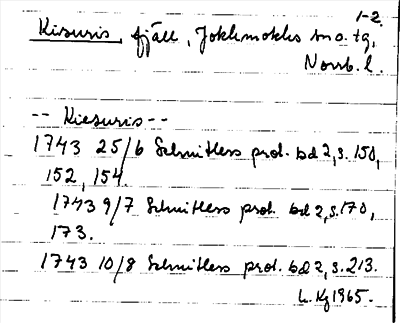 1-2.
Kisuris, fjäll, Jokkmokks sn o. tg,
Norrb. l.
-- Kiesuris --
1743 25/6 Schnitlers prot. bd 2, s. 150,
152, 154.
1743 9/7 Schnitlers prot. bd 2, s. 170,
173.
1743 10/8 Schnitlers prot. bd 2, s. 213.
L. Kg 1965.